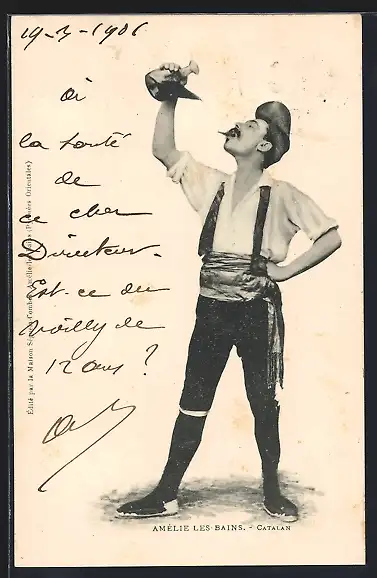 19-3-1906
à
la santé
de
ce cher
Directeur.
Est-ce du
de
12 ans ?
AMÉLIE LES BAINS. - CATALAN
Édité par la Maison Amélie-les-Bains (Pyrénées Orientales)